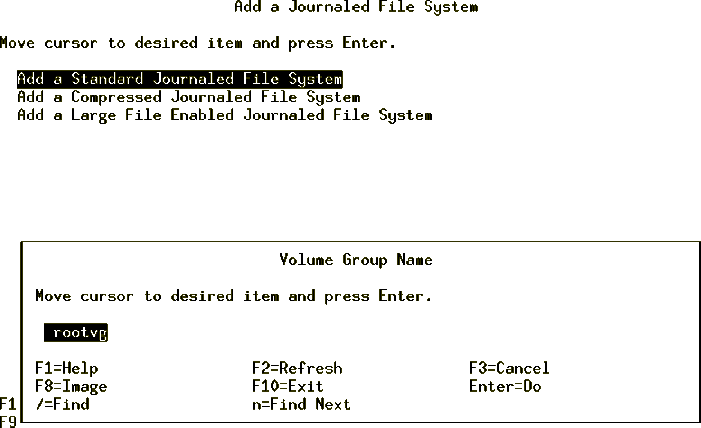 Add a Journaled File System
Move cursor to desired item and press Enter.
Add a Standard Journaled File System
Add a Compressed Journaled File System
Add a Large File Enabled Journaled File System
Volume Group Name
Move cursor to desired item and press Enter.
rootvg
F1=Help F2=Refresh F3=Cancel
F8=Image F10=Exit Enter=Do
F1 /=Find n=Find Next
F9